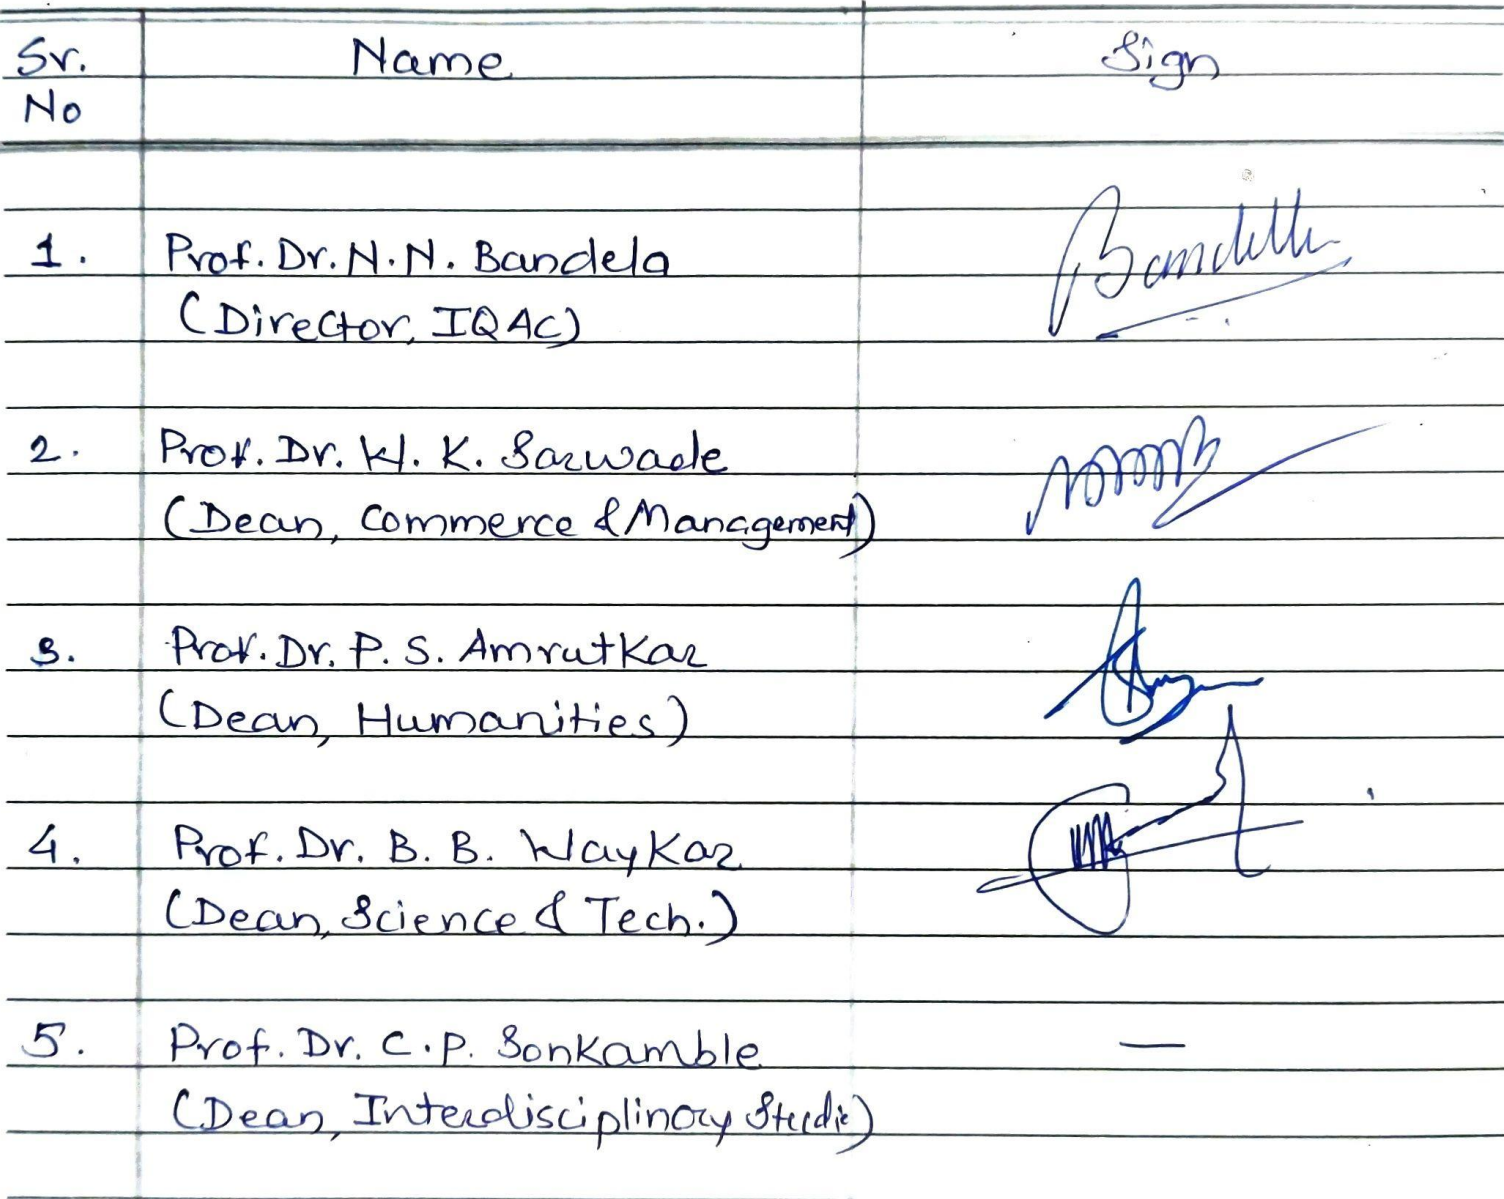 Sr. Name Sign
No
1. Prof. Dr. N. N. Bandela
(Director, IQAC)
2. Prof. Dr. W. K. Sarwade
(Dean, Commerce & Management)
3. Prof. Dr. P. S. Amrutkar
(Dean, Humanities)
4. Prof. Dr. B. B. Waykar
(Dean, Science & Tech.)
5. Prof. Dr. C. P. Sonkamble —
(Dean, Interdisciplinary Studie)